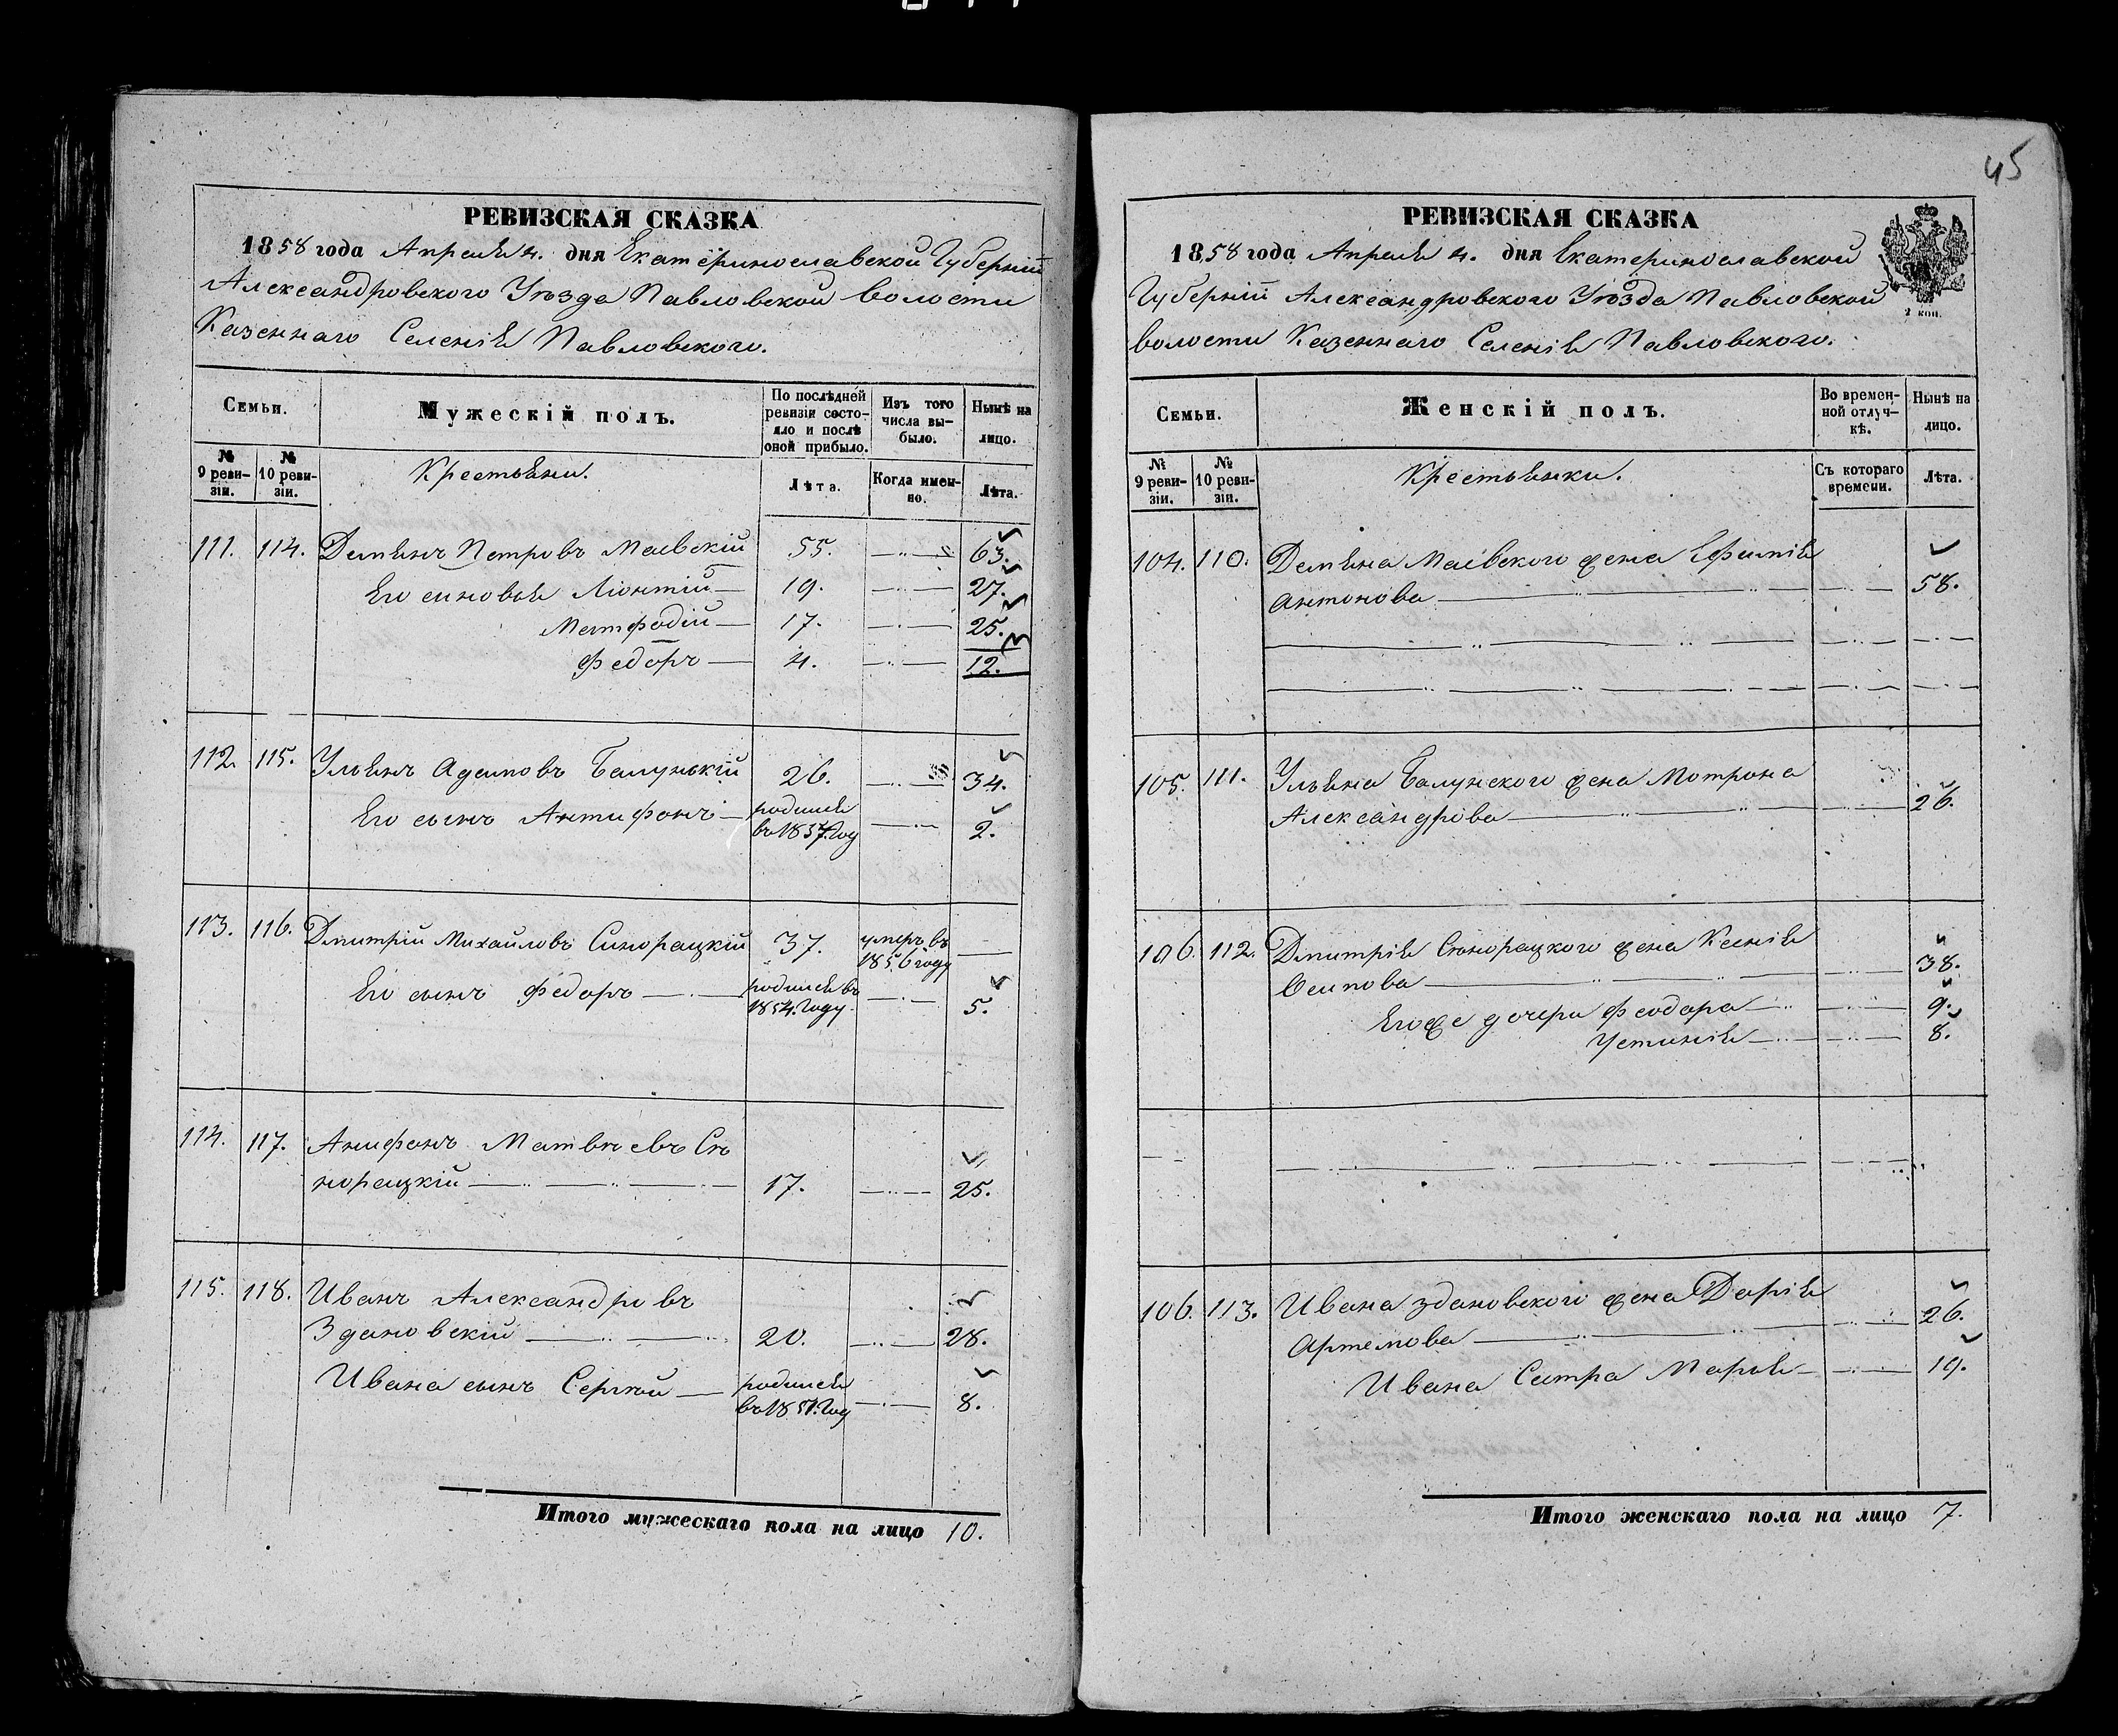 РЕВИЗСКАЯ СКАЗКА
1858 года Апреля 4. дня Екатеринославской Губерніи
Александровского Уѣзда Павловской волости
Казеннаго Селенія Павловского.
Семьи.
Мужескій полъ.
По послѣдней ревизіи состояло и послѣ оной прибыло.
Изъ того числа выбыло.
Нынѣ на лицо.
№ 9 ревизіи.
№ 10 ревизіи.
Крестьяни.
Лѣта.
Когда именно.
Лѣта.
111. 114. Демянъ Петровъ Маевскій 55. 63.
Его синовья Ліонтій 19. 27.
Матфодій 17. 25.
Федоръ 4. 12.
112. 115. Ульянъ Адамовъ Балунскій 26. 34.
Его сынъ Антифонъ родился въ 1857 Год 2.
113. 116. Дмитрій Михайловъ Синорацкій 37. умеръ въ 1856 году
Его сынъ Федоръ родился въ 1854. Году 5.
114. 117. Анифонъ Матвѣевъ Сѣ
норацкій 17. 25.
115. 118. Иванъ Александровъ
Здановскій 20. 28.
Ивана сынъ Сергѣй родился въ 1851. Год 8.
Итого мужескаго пола на лицо 10.
45
РЕВИЗСКАЯ СКАЗКА
1858 года Апреля 4. дня Екатеринославской
Губерніи Александровского Уѣзда Павловской
волости Казеннаго Селенія Павловского.
2 коп.
Семьи.
Женскій полъ.
Во временной отлучкѣ.
Нынѣ на лицо.
№ 9 ревизіи.
№ 10 ревизіи.
Крестьянки.
Съ котораго времени.
Лѣта.
104. 110. Демяна Маевского жена Ефимія
Антонова 58.
105. 111. Ульяна Балунского жена Мотрона
Александрова 26.
106. 112. Дмитрія Сѣнорацкого жена Ксенія
Осипова 38.
Егоже дочери Феодора 9.
Устинія 8.
106. 113. Ивана Здановского жена Дарія
Артемова 26.
Ивана Систра Марія 19.
Итого женскаго пола на лицо 7.